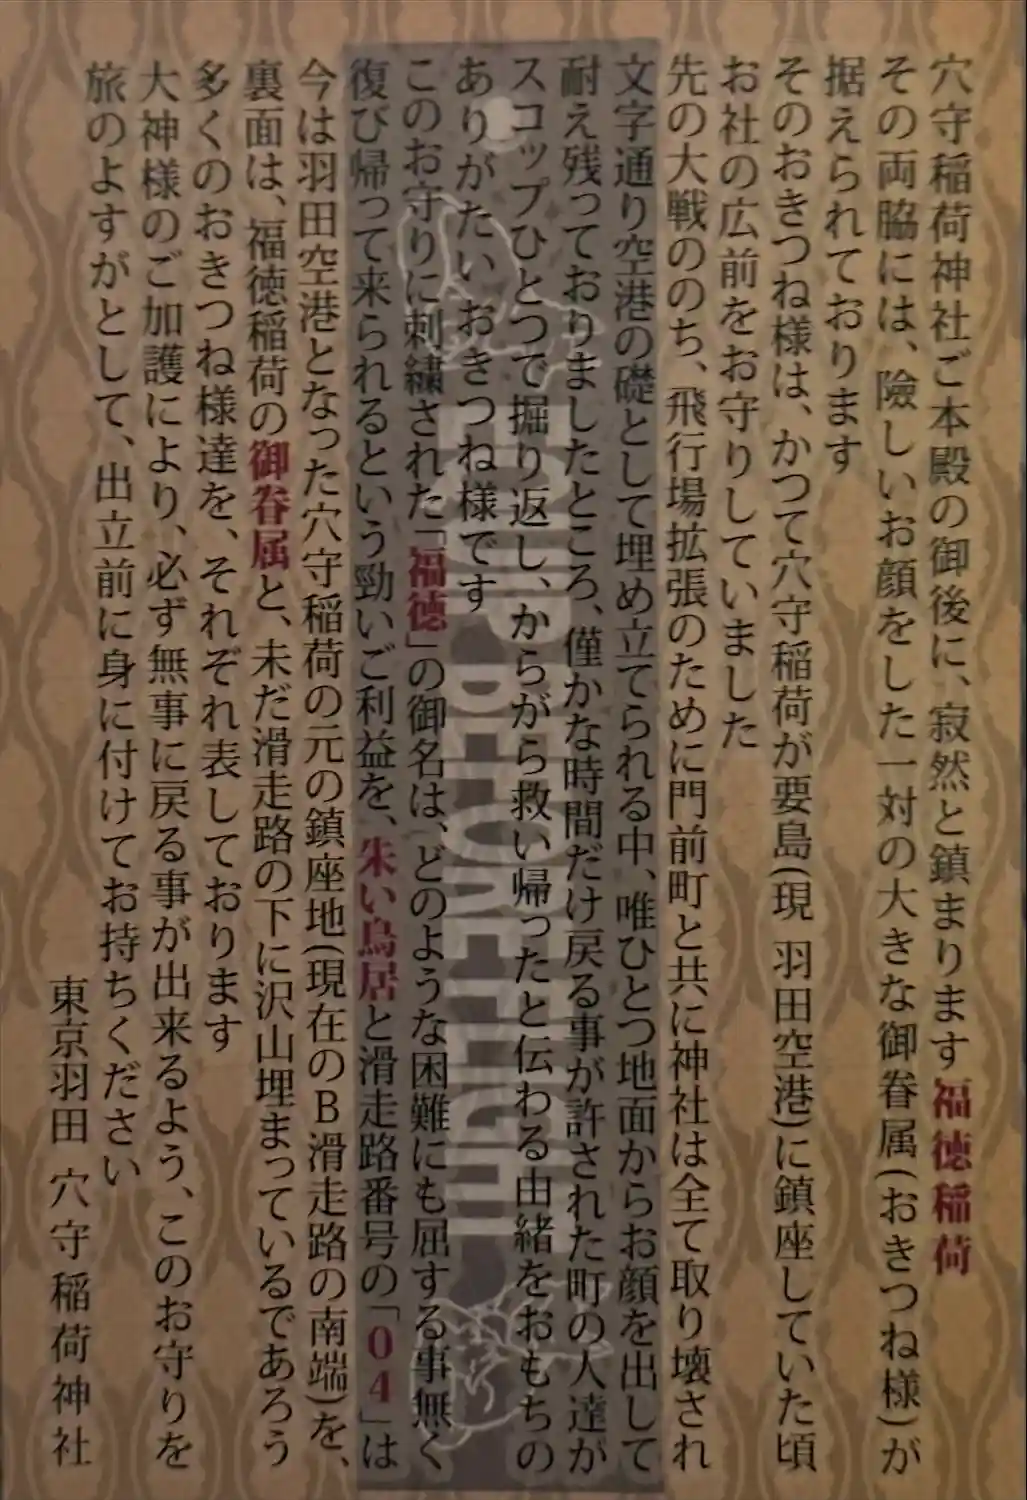 穴守稲荷神社ご本殿の御後に、寂然と鎮まります福徳稲荷
その両脇には、険しいお顔をした一対の大きな御眷属(おきつね様)が
据えられております
そのおきつね様は、かつて穴守稲荷が要島(現 羽田空港)に鎮座していた頃
お社の広前をお守りしていました
先の大戦ののち、飛行場拡張のために門前町と共に神社は全て取り壊され
文字通り空港の礎として埋め立てられる中、唯ひとつ地面からお顔を出して
耐え残っておりましたところ、僅かな時間だけ戻る事が許された町の人達が
スコップひとつで掘り返し、からがら救い帰ったと伝わる由緒をおもちの
ありがたい おきつね様です
このお守りに刺繍された「福徳」の御名は、どのような困難にも屈する事無く
復び帰って来られるという勁いご利益を、朱い鳥居と滑走路番号の「04」は
今は羽田空港となった穴守稲荷の元の鎮座地(現在のB滑走路の南端)を、
裏面は、福徳稲荷の御眷属と、未だ滑走路の下に沢山埋まっているであろう
多くのおきつね様達を、それぞれ表しております
大神様のご加護により、必ず無事に戻る事が出来るよう、このお守りを
旅のよすがとして、出立前に身に付けてお持ちください
東京羽田 穴守稲荷神社